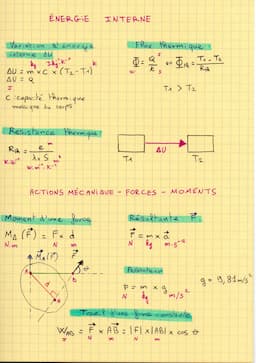 ÉNERGIE INTERNE
Variation d'énergie interne ΔU
kg J.kg⁻¹.K⁻¹ K
ΔU = m × c × (T2 - T1)
ΔU = Q
J
C : capacité thermique
massique du corps
Flux thermique :
Φ = Q/t ou Φth = (T1 - T2)/Rth
T1 > T2
Résistance thermique
Rth = e/(λ × S)
m
m²
K.W⁻¹
W.m⁻¹.K⁻¹
T1 ΔU T2
ACTIONS MÉCANIQUE - FORCES - MOMENTS
Moment d'une force
MΔ (F) = F × d
N.m N m
MΔ(F)
F
Δ
d
θ
Résultante F
F = m × a
N kg m.s⁻²
P = m × g
N kg m/s²
g = 9,81 m/s²
Travail d'une force constante
WAB = F × AB = |F| × |AB| × cos θ
J N m N m